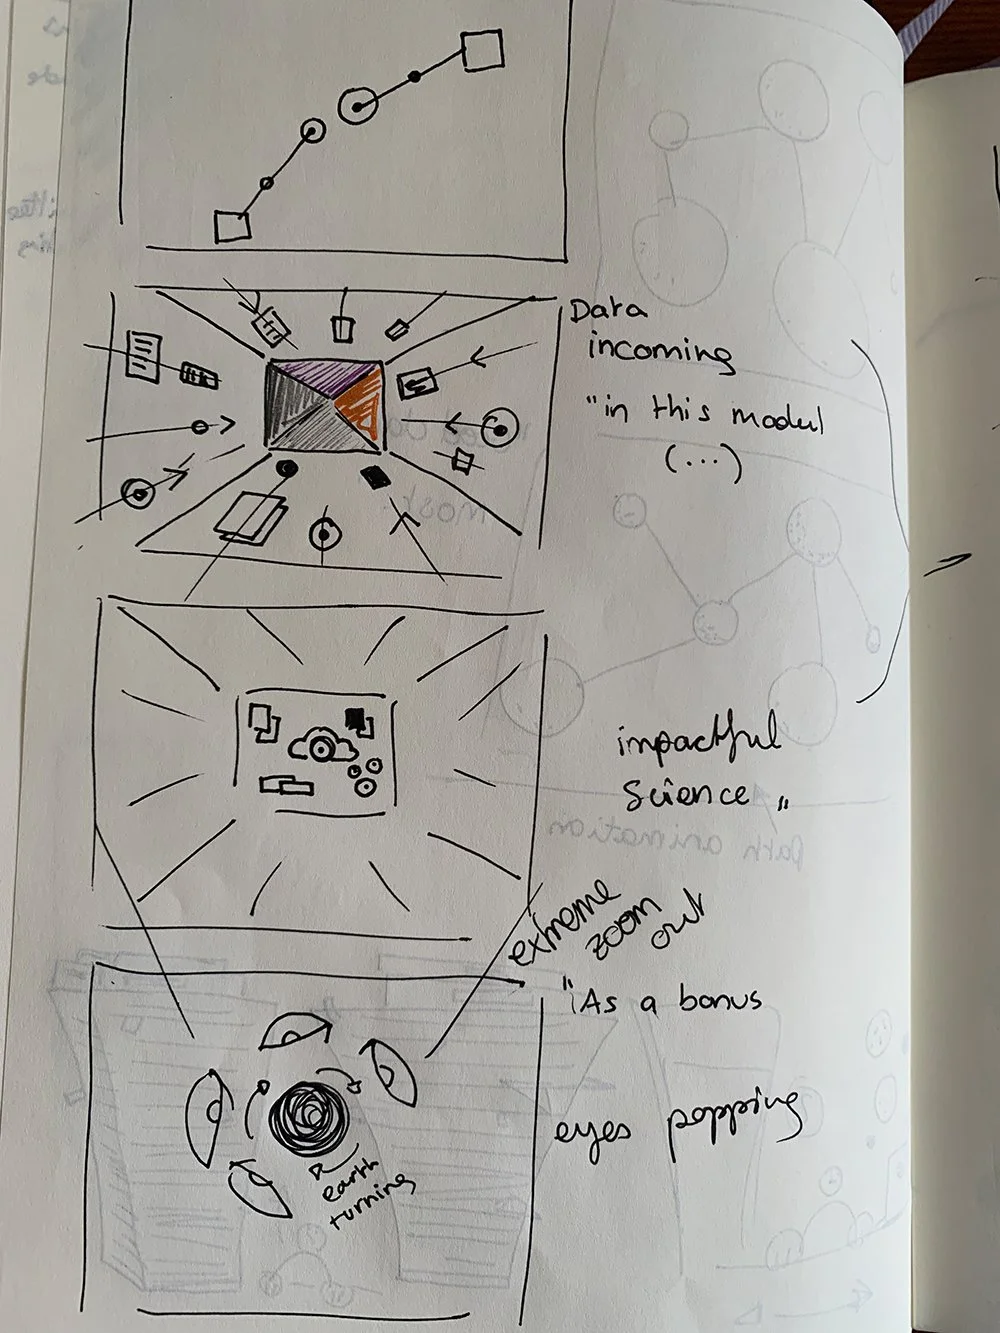 Data
incoming
"in this modul
(...)
impactful
science "
extreme
zoom
out
"As a bonus
eyes popping
earth
turning
path animation